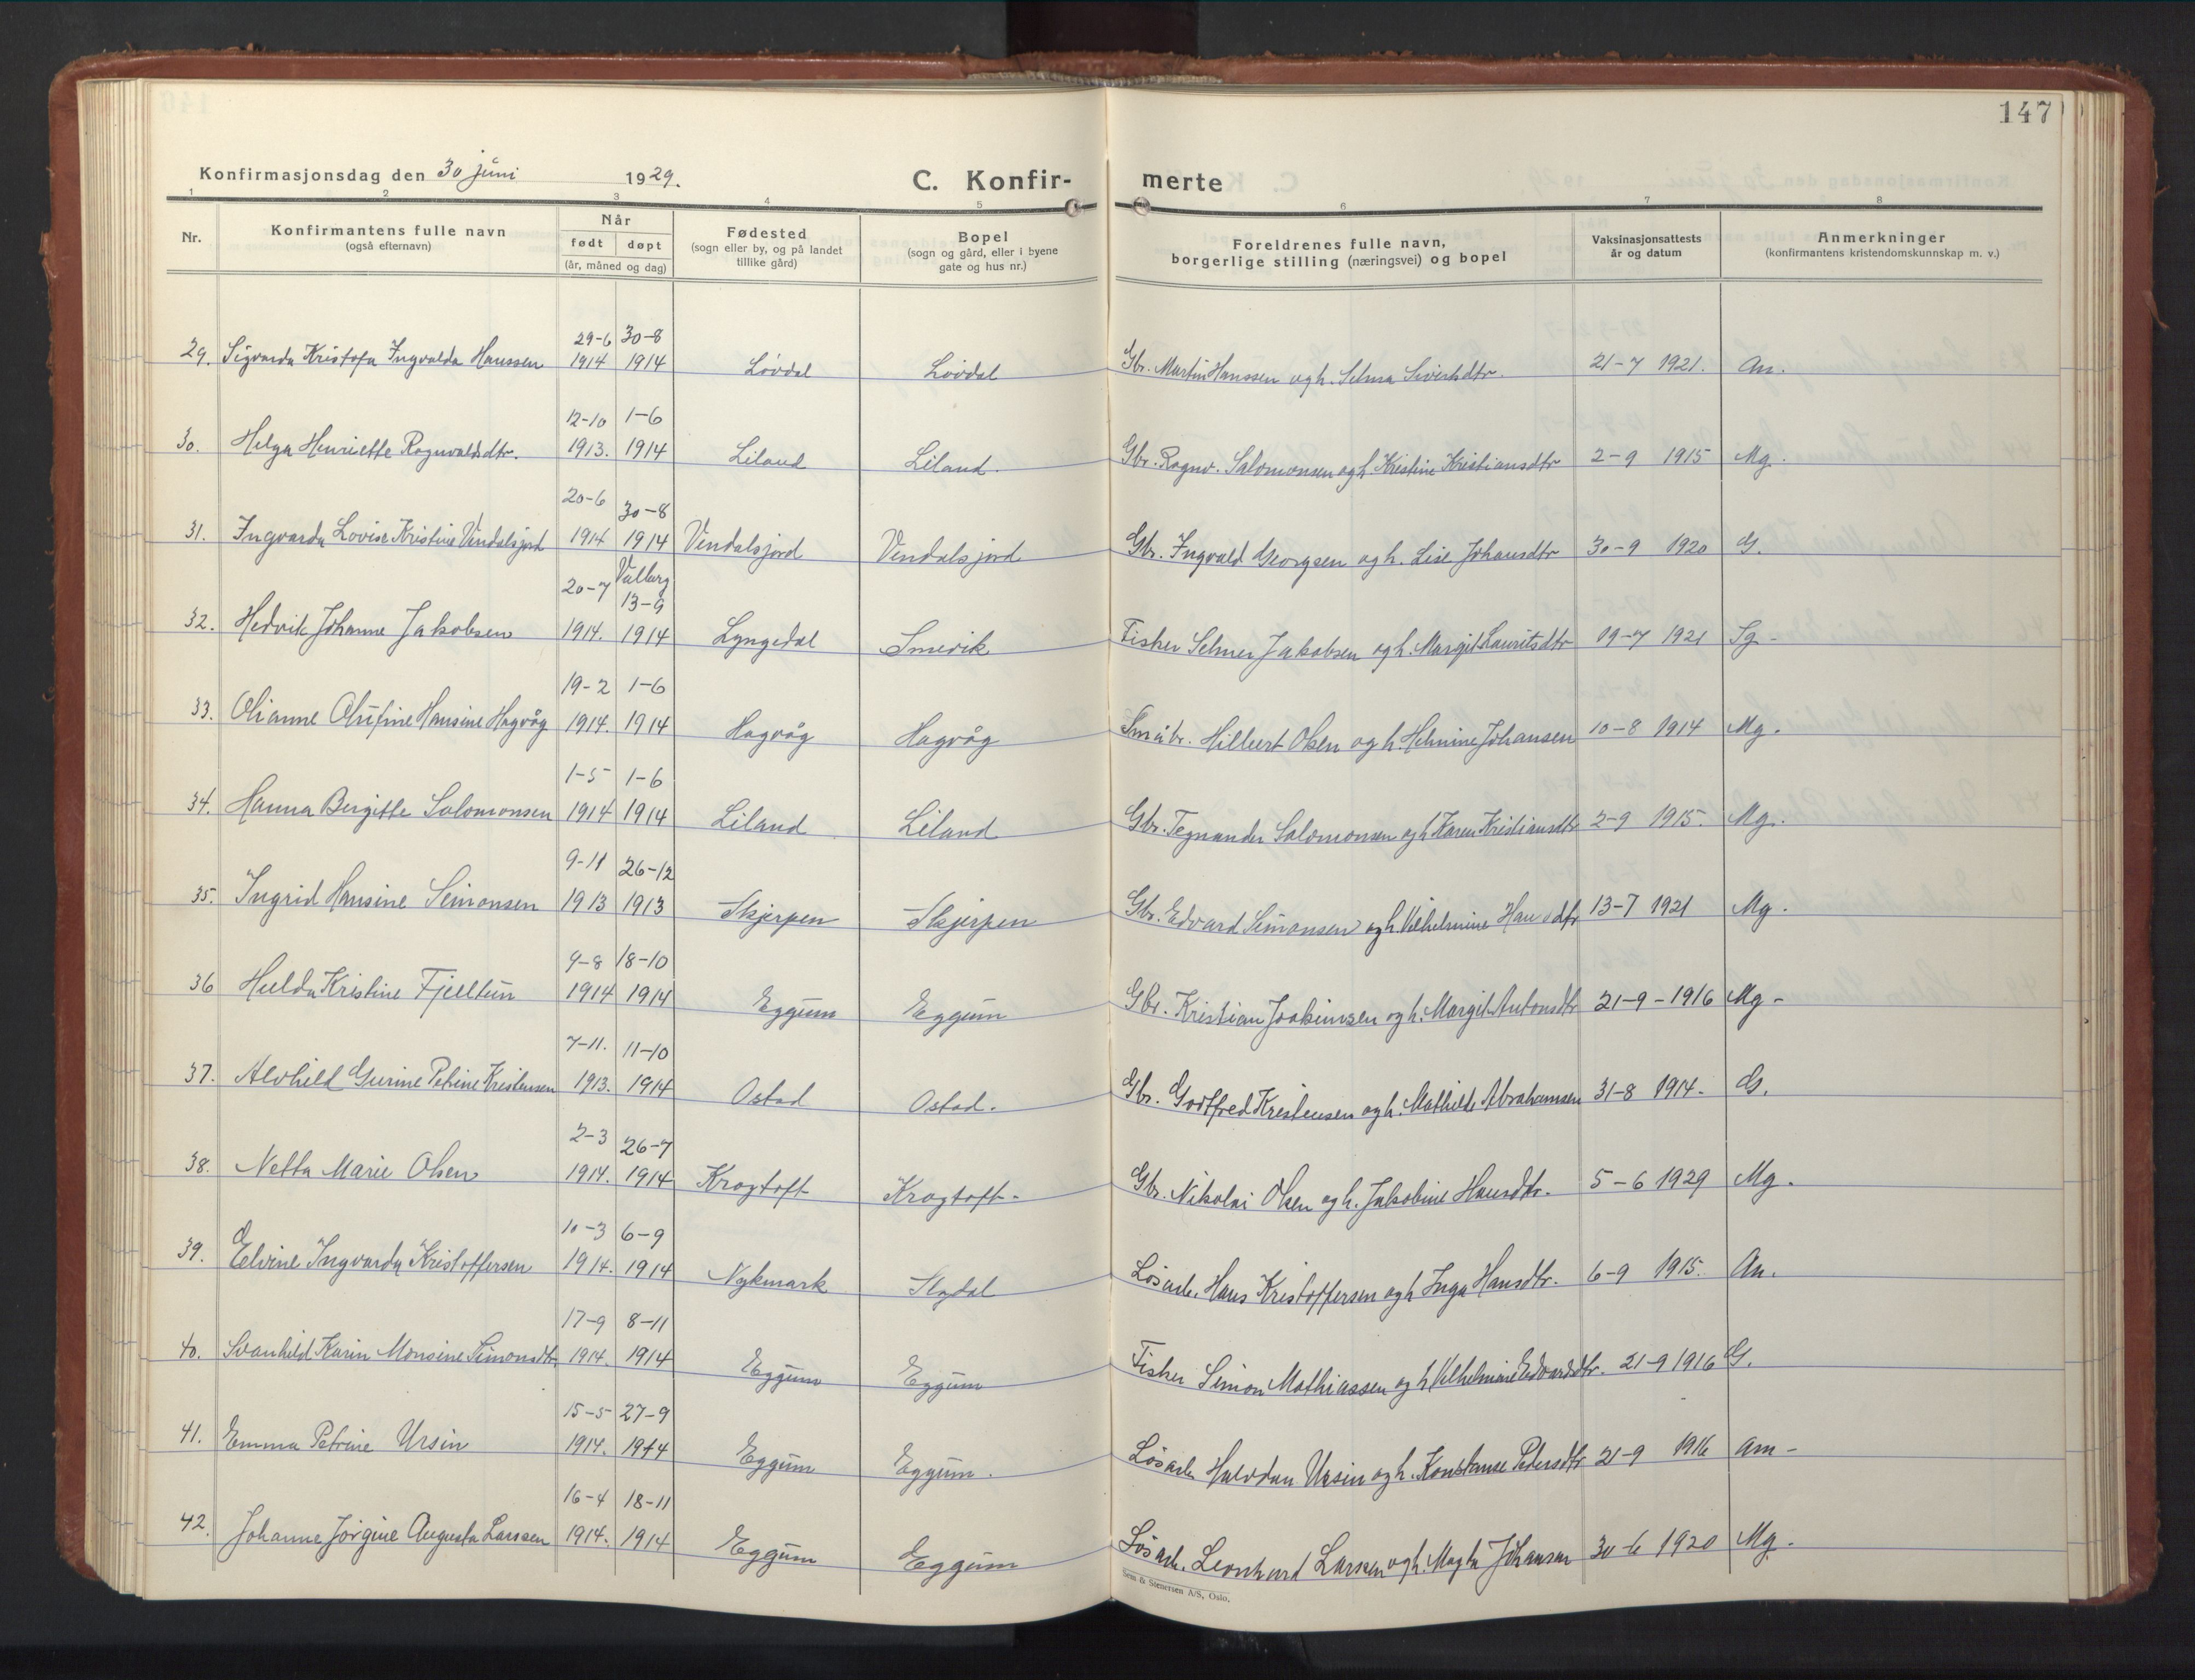 147
Konfirmasjonsdag den 30 juni 1929.
C. Konfir- merte
1 2 3 4 5 6 7 8
Nr.
Konfirmantens fulle navn
(også efternavn)
Når
født døpt
(år, måned og dag)
Fødested
(sogn eller by, og på landet
tillike gård)
Bopel
(sogn og gård, eller i byene
gate og hus nr.)
Foreldrenes fulle navn,
borgerlige stilling (næringsvei) og bopel
Vaksinasjonsattests
år og datum
Anmerkninger
(konfirmantens kristendomskunnskap m. v.)
29-6 30-8
29. Sigvarda Kristofa Ingvalda Hanssen 1914 1914 Lövdal Lövdal Gbr. Martin Hanssen og h. Selma Siverhdtr. 21-7 1921. An.
12-10 1-6
30. Helga Henriette Ragnvaldsdtr. 1913. 1914 Liland Liland. Gbr. Ragnv. Salomonsen og h. Kristine Kristiansdtr 2-9 1915 Mg.
20-6 30-8
31. Ingvarda Lovise Kristine Vindalsjord 1914 1914 Vindalsjord Vindalsjord Gbr. Ingvald Georgsen og h. Lise Johansdtr 30-9 1920 G.
20-7 Valberg 13-9
32. Hedvik Johanne Jakobsen 1914. 1914 Lyngedal Smevik Fisker Selmer Jakobsen og h. Margit Lauritsdtr 19-7 1921 Sg -
19-2 1-6
33. Olianne Olufine Hansine Hagvåg 1914. 1914 Hagvåg Hagvåg Småbr. Hilbert Olsen og h. Helmine Johansen 10-8 1914 Mg.
1-5 1-6
34. Hanna Bergitte Salomonsen 1914 1914 Liland Liland Gbr. Tegnander Salomonsen og h Karen Kristiansdtr 2-9 1915. Mg.
9-11 26-12
35. Ingrid Hansine Simonsen 1913 1913 Skjerpen Skjerpen Gbr. Edvard Simonsen og h. Vilhelmine Hansdtr 13-7 1921 Mg.
9-8 18-10
36 Hulda Kristine Fjelltun 1914 1914 Eggum Eggum Gbr. Kristian Joakimsen og h. Margit Antonsdtr 21-9-1916 Mg -
7-11. 11-10
37. Alvhild Gurine Petrine Kristensen 1913. 1914 Ostad Ostad. Gbr. Godtfred Kristensen og h. Mathilde Abrahamsen 31-8 1914. G.
2-3 26-7
38. Netta Marie Olsen 1914. 1914 Krogtoft Krogtoft- Gbr. Nikolai Olsen og h. Jakobine Hansdtr. 5-6 1929 Mg.
10-3 6-9
39. Elvine Ingvarda Kristoffersen 1914. 1914 Nykmark Slydal Lösarb. Hans Kristoffersen og h Inga Hansdtr. 6-9 1915. An.
17-9 8-11
40. Svanhild Karin Monsine Simonsdtr. 1914. 1914 Eggum Eggum Fisker Simon Mathiassen og h Vilhelmine Edvardsdtr. 21-9 1916 G.
15-5 27-9
41. Emma Petrine Ursin 1914. 1914 Eggum Eggum. Lösarb Halvdan Ursin og h. Konstanse Pedersdtr 21-9 1916 Am -
16-4 18-11
42. Johanne Jörgine Augusta Larssen 1914. 1914 Eggum Eggum Lösarb. Leonhard Larssen og h. Magda Johansen 30-6 1920 Mg.
Sem & Stenersen A/S, Oslo.